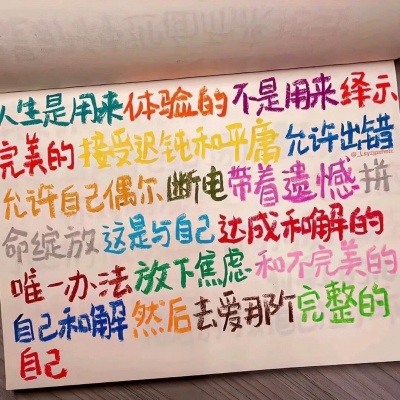 人生是用来体验的不是用来绎示
完美的接受迟钝和平庸允许出错
允许自己偶尔断电带着遗憾拼
命绽放这是与自己达成和解的
唯一办法放下焦虑和不完美的
自己和解然后去爱那个完整的
自己